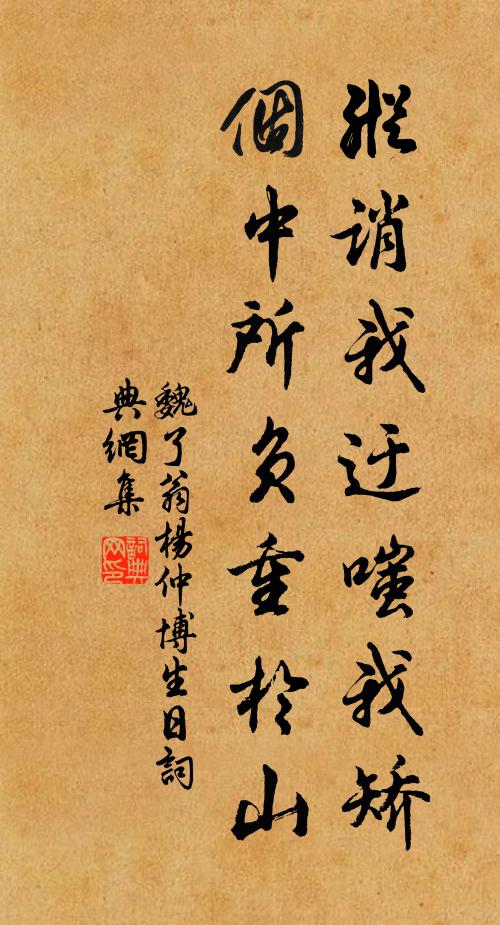 縱誚我迂嗤我矯
個中所負重於山
魏了翁楊仲博生日詞
典網集
詞典網印